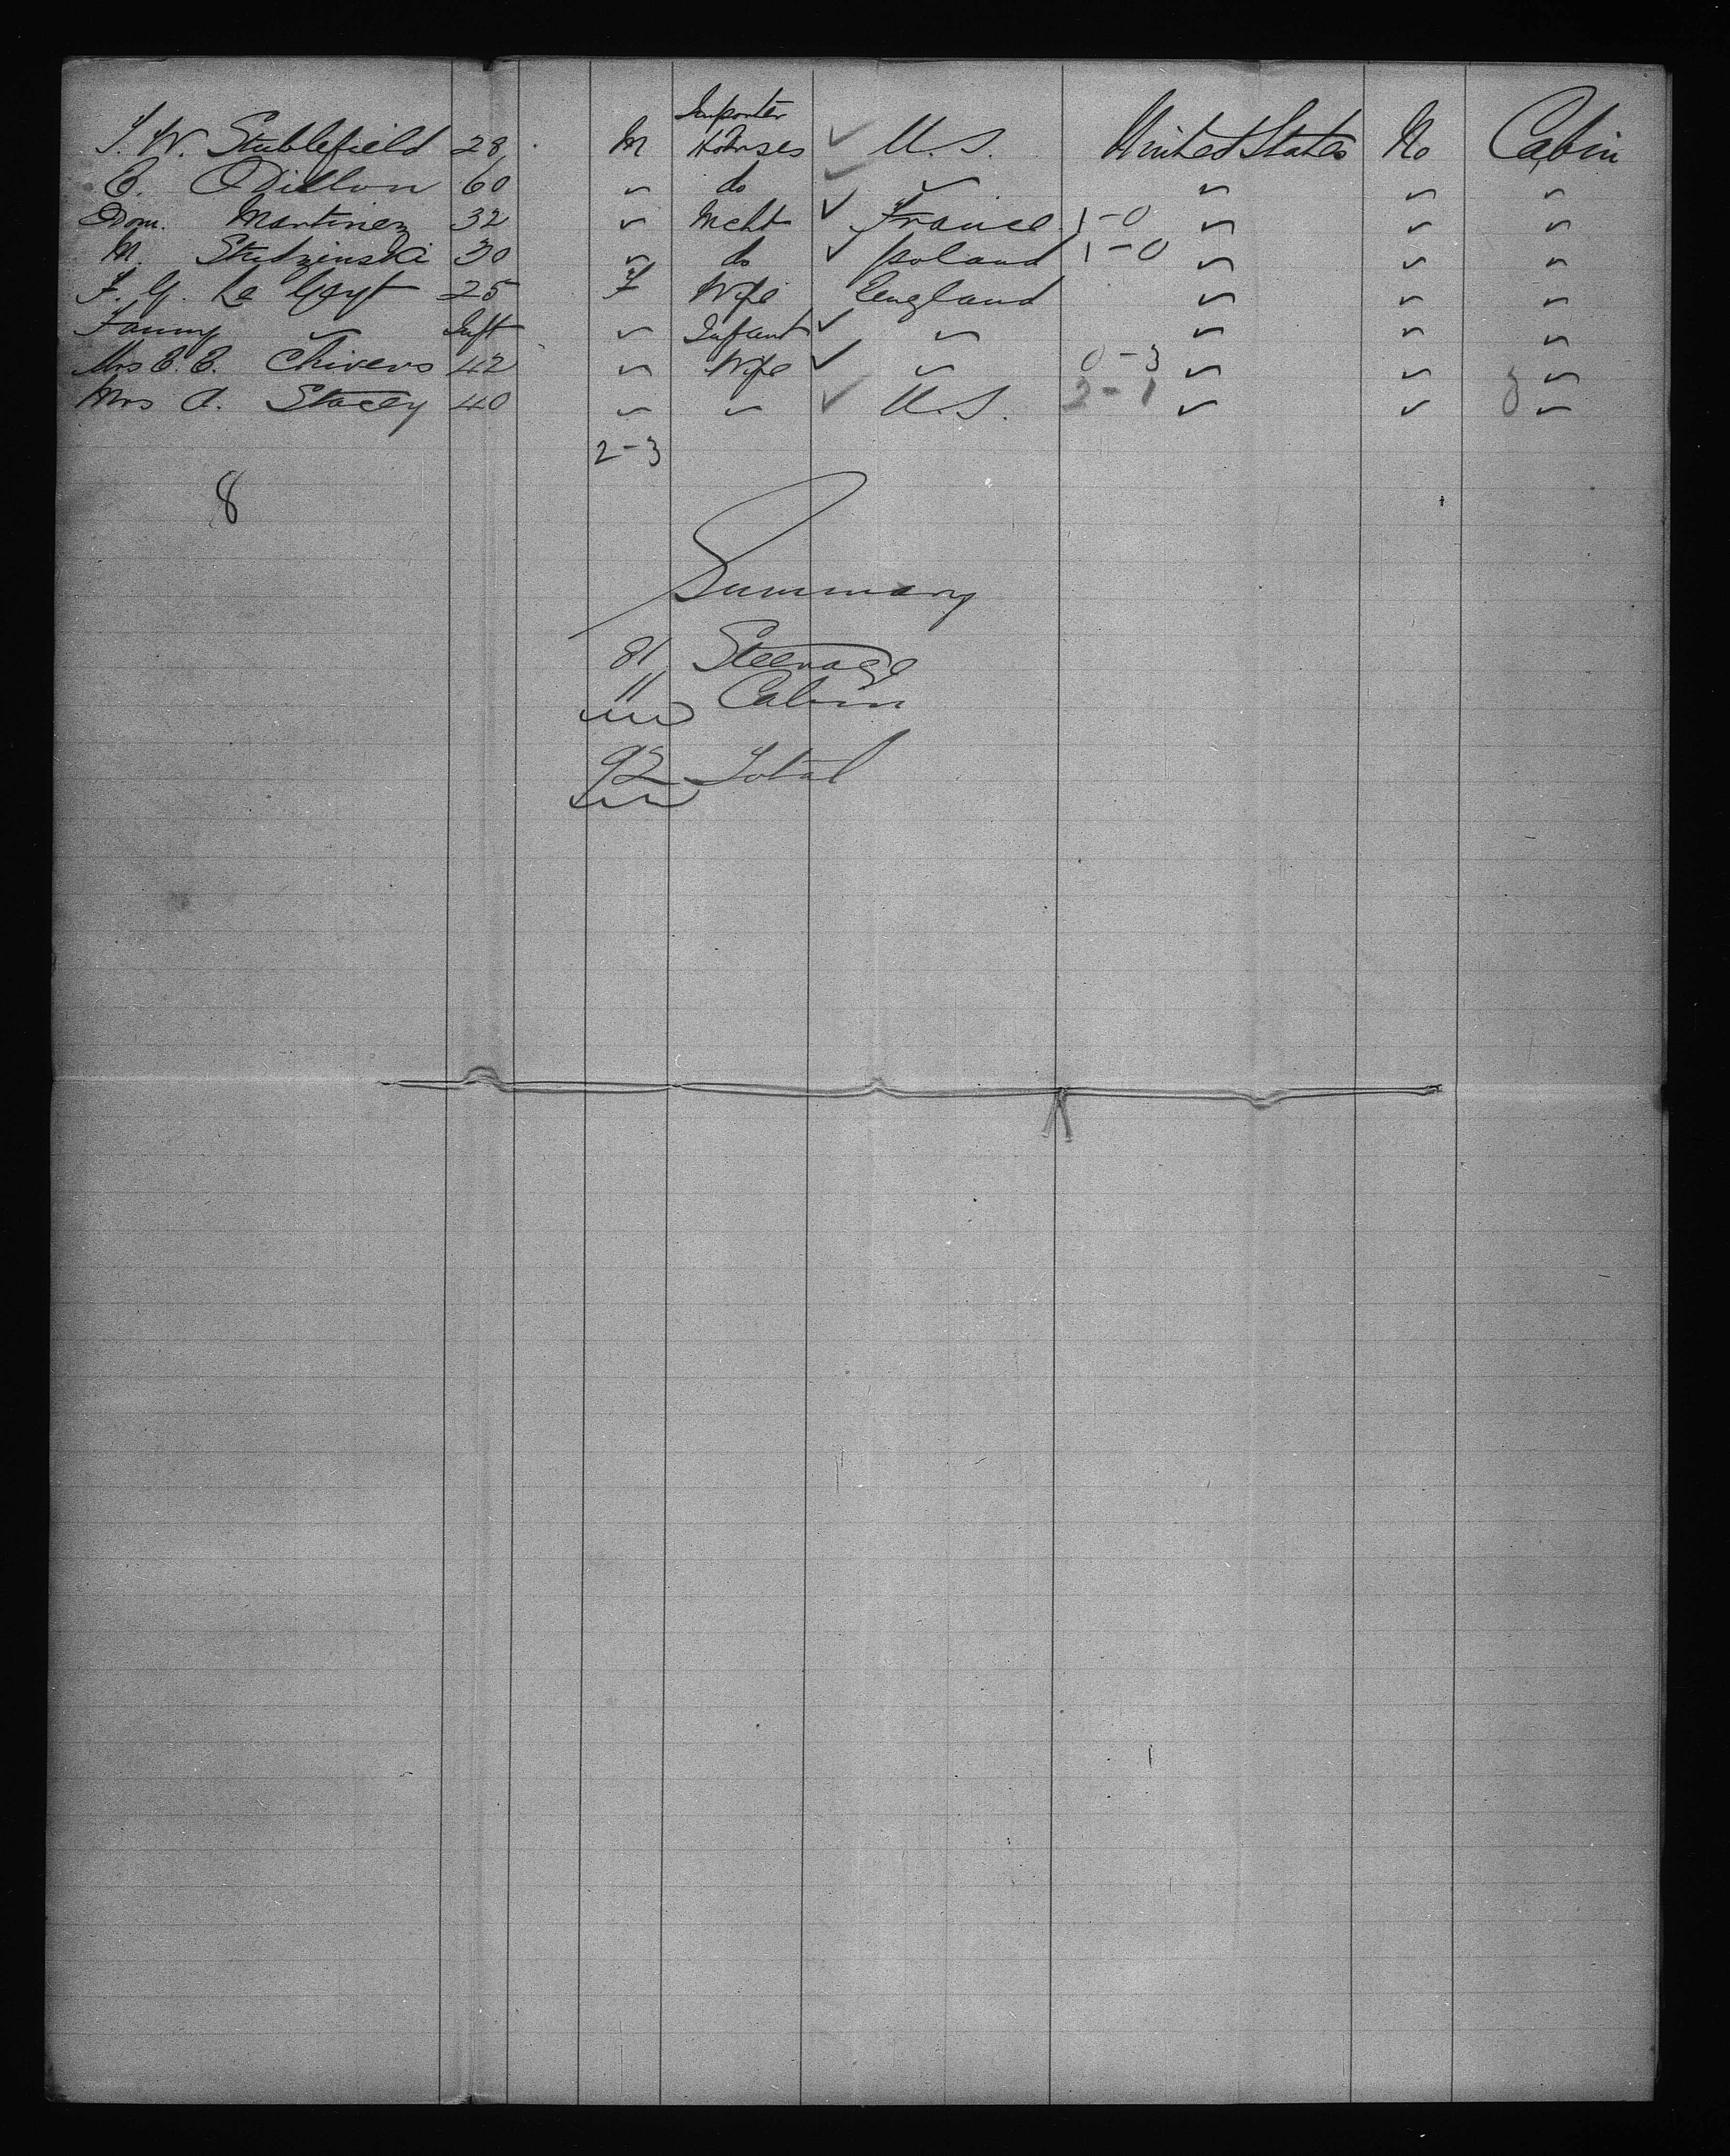 Importer
S. W. Stubblefield 28 M Horses ✓ U.S. United States No Cabin
E. O'Dillon 60 " do ✓ " " " "
Dom. Martinez 32 " Mcht ✓ France 1-0 " " "
M. Studzinski 30 " do ✓ Poland 1-0 " " "
F. G. Le Geyt 25 F Wife England " " "
Fanny " Inft " Infant ✓ " " " "
Mrs E. E. Chivers 42 " Wife ✓ " 0-3 " " "
Mrs A. Stacey 40 " " ✓ U.S. 2-1 " " 8 "
2-3
8
Summary
81 Steerage
11 Cabin
92 Total